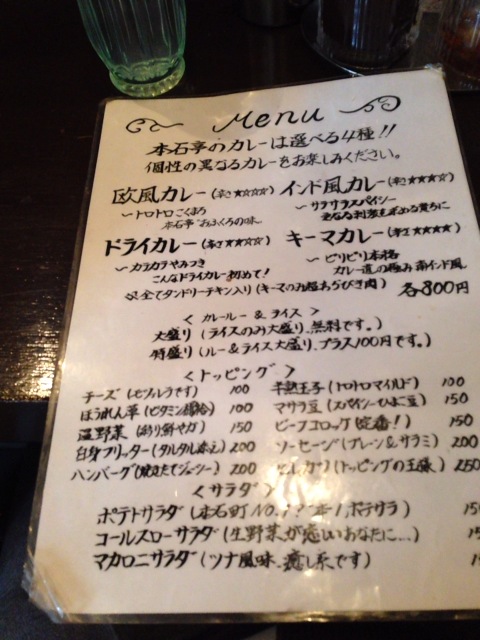 Menu
本石亭のカレーは選べる4種!!
個性の異なるカレーをお楽しみください。
欧風カレー(辛さ★☆☆☆) インド風カレー(辛さ★★★☆)
〜トロトロこくまろ 〜サラサラスパイシー
本石亭おふくろの味 更なる刺激を求める貴方に
ドライカレー(辛さ★★☆☆) キーマカレー(辛さ★★★★)
〜カラカラやみつき 〜ピリピリ本格
こんなドライカレー初めて! カレー道の極み 南インド風
※全てタンドリーチキン入り(キーマのみ極あらびき肉) 各800円
<カレールー&ライス>
大盛り(ライスのみ大盛り、無料です。)
特盛り(ルー&ライス大盛り、プラス100円です。)
<トッピング>
チーズ(とろ〜りです) 100 半熟玉子(トロトロマイルド) 100
ほうれん草(ビタミン補給) 100 マサラ豆(スパイシーひよこ豆) 150
温野菜(彩り鮮やか) 150 ビーフコロッケ(定番!) 150
白身フリッター(タルタル添え) 200 ソーセージ(プレーン&サラミ) 200
ハンバーグ(焼きたてジューシー) 200 ヒレカツ(トッピングの王様) 250
<サラダ>
ポテトサラダ(本石町NO.1 ポテサラ) 15
コールスローサラダ(生野菜が恋しいあなたに…) 15
マカロニサラダ(ツナ風味、癒し系です) 1